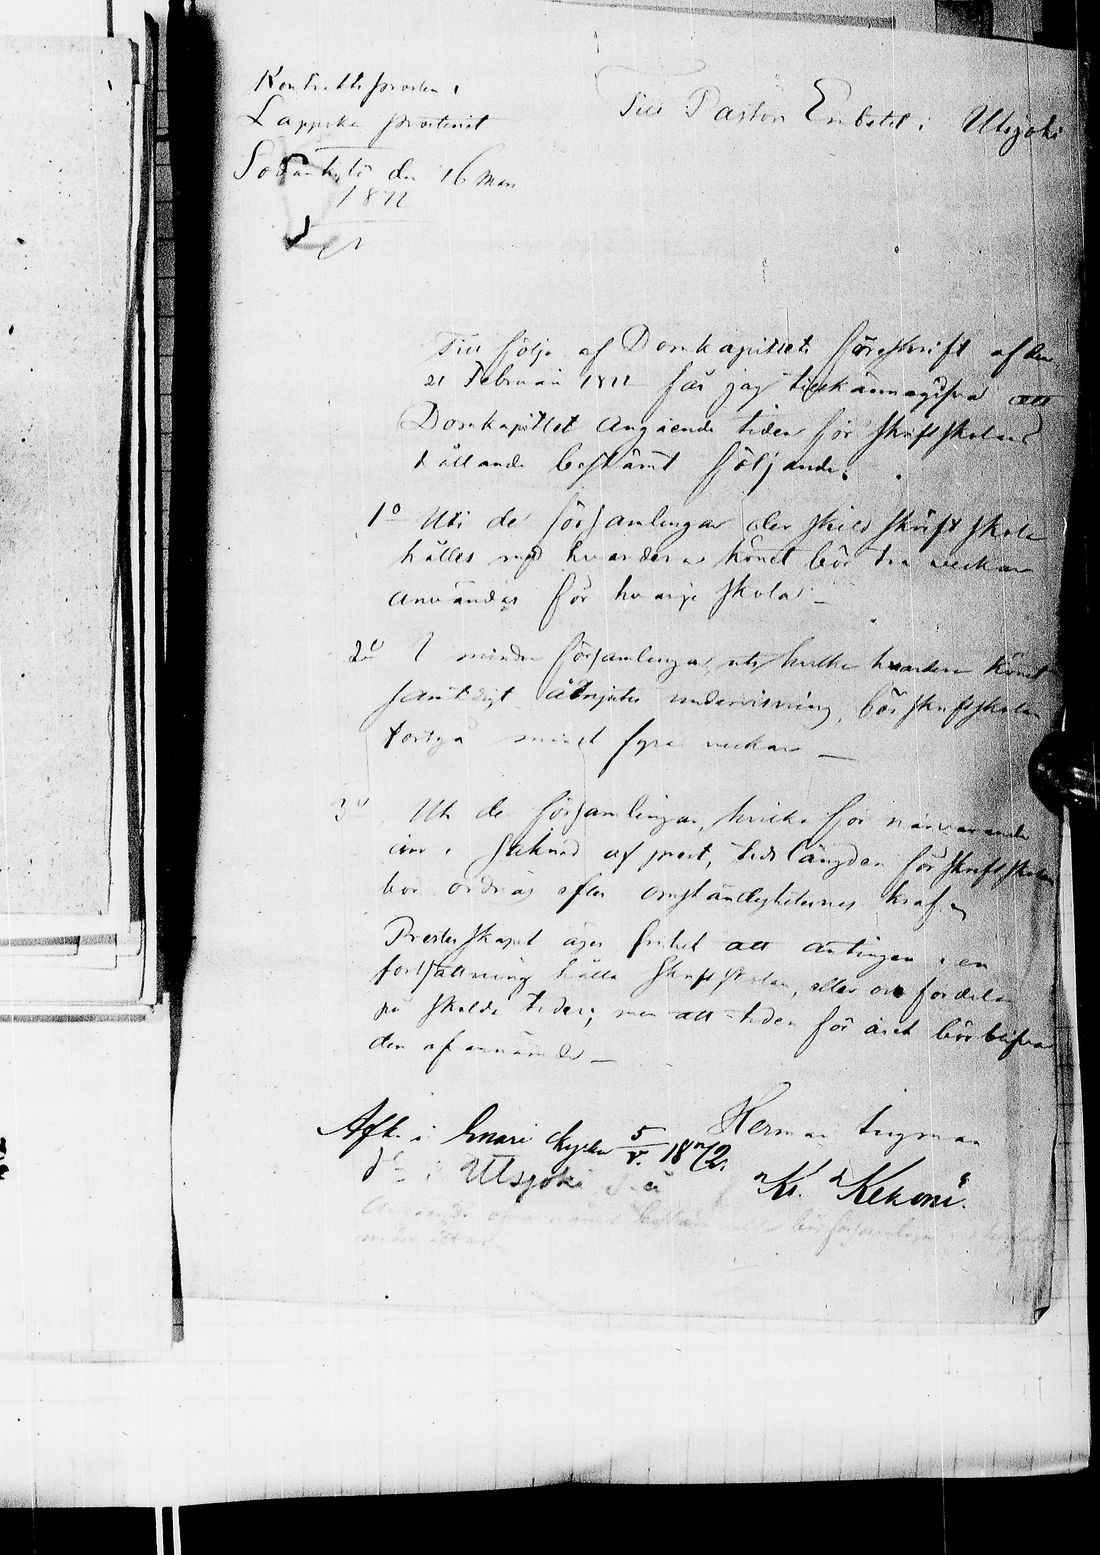 Kontrakts prosten i
Lappska prosteriet
Sodankylä den 16 Mars
1872
Till Pastors Embetet i Utsjoki
Till följe af Domkapitlets föreskrift af den
21 Februari 1872 får jag tillkännagifva att
Domkapitlet angående tiden för skriftskolans
hållande bestämt följande:
1o Uti de församlingar der skild skriftskola
hålles med hvardera könet bör tre veckor
användas för hvarje skola. –
2o I mindre församlingar, uti hvilka hvardera könet
samtidigt åtnjuter undervisning, bör skriftskolan
fortgå minst fyra veckor –
3o Uti de församlingar, hvilka för närvarande
äro i saknad af prest, tidslängden för skriftskolan
bör ordnas efter omständigheternes kraf.
Presterskapet äger frihet att antingen i en
fortsättning hålla skriftskolan, eller ock fördela
på skilda tider; men att tiden för året bör blifva
den ofvannämnda –
Herman Lugman
Afk. i Enari kyrka 5/V. 1872.
do i Utsjoki
Kr. Kekoni.